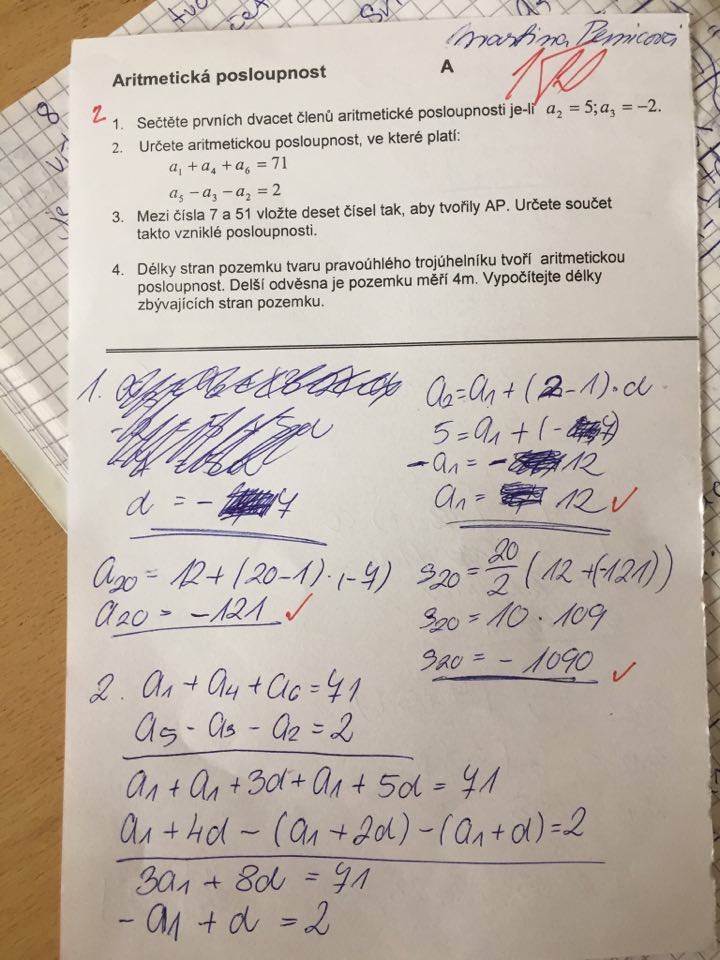 Martina
Aritmetická posloupnost A
2 1. Sečtěte prvních dvacet členů aritmetické posloupnosti je-li a₂ = 5; a₃ = −2.
2. Určete aritmetickou posloupnost, ve které platí:
a₁ + a₄ + a₆ = 71
a₅ − a₃ − a₂ = 2
3. Mezi čísla 7 a 51 vložte deset čísel tak, aby tvořily AP. Určete součet
takto vzniklé posloupnosti.
4. Délky stran pozemku tvaru pravoúhlého trojúhelníku tvoří aritmetickou
posloupnost. Delší odvěsna je pozemku měří 4m. Vypočítejte délky
zbývajících stran pozemku.
1.
d = − 7
a₂ = a₁ + (2−1)·d
5 = a₁ + (−7)
−a₁ = − 12
a₁ = 12 ✓
a₂₀ = 12 + (20−1)·(−7)
a₂₀ = −121 ✓
s₂₀ = 20/2 (12 + (−121))
s₂₀ = 10 · 109
s₂₀ = − 1090 ✓
2. a₁ + a₄ + a₆ = 71
a₅ − a₃ − a₂ = 2
a₁ + a₁ + 3d + a₁ + 5d = 71
a₁ + 4d − (a₁ + 2d) − (a₁ + d) = 2
3a₁ + 8d = 71
−a₁ + d = 2